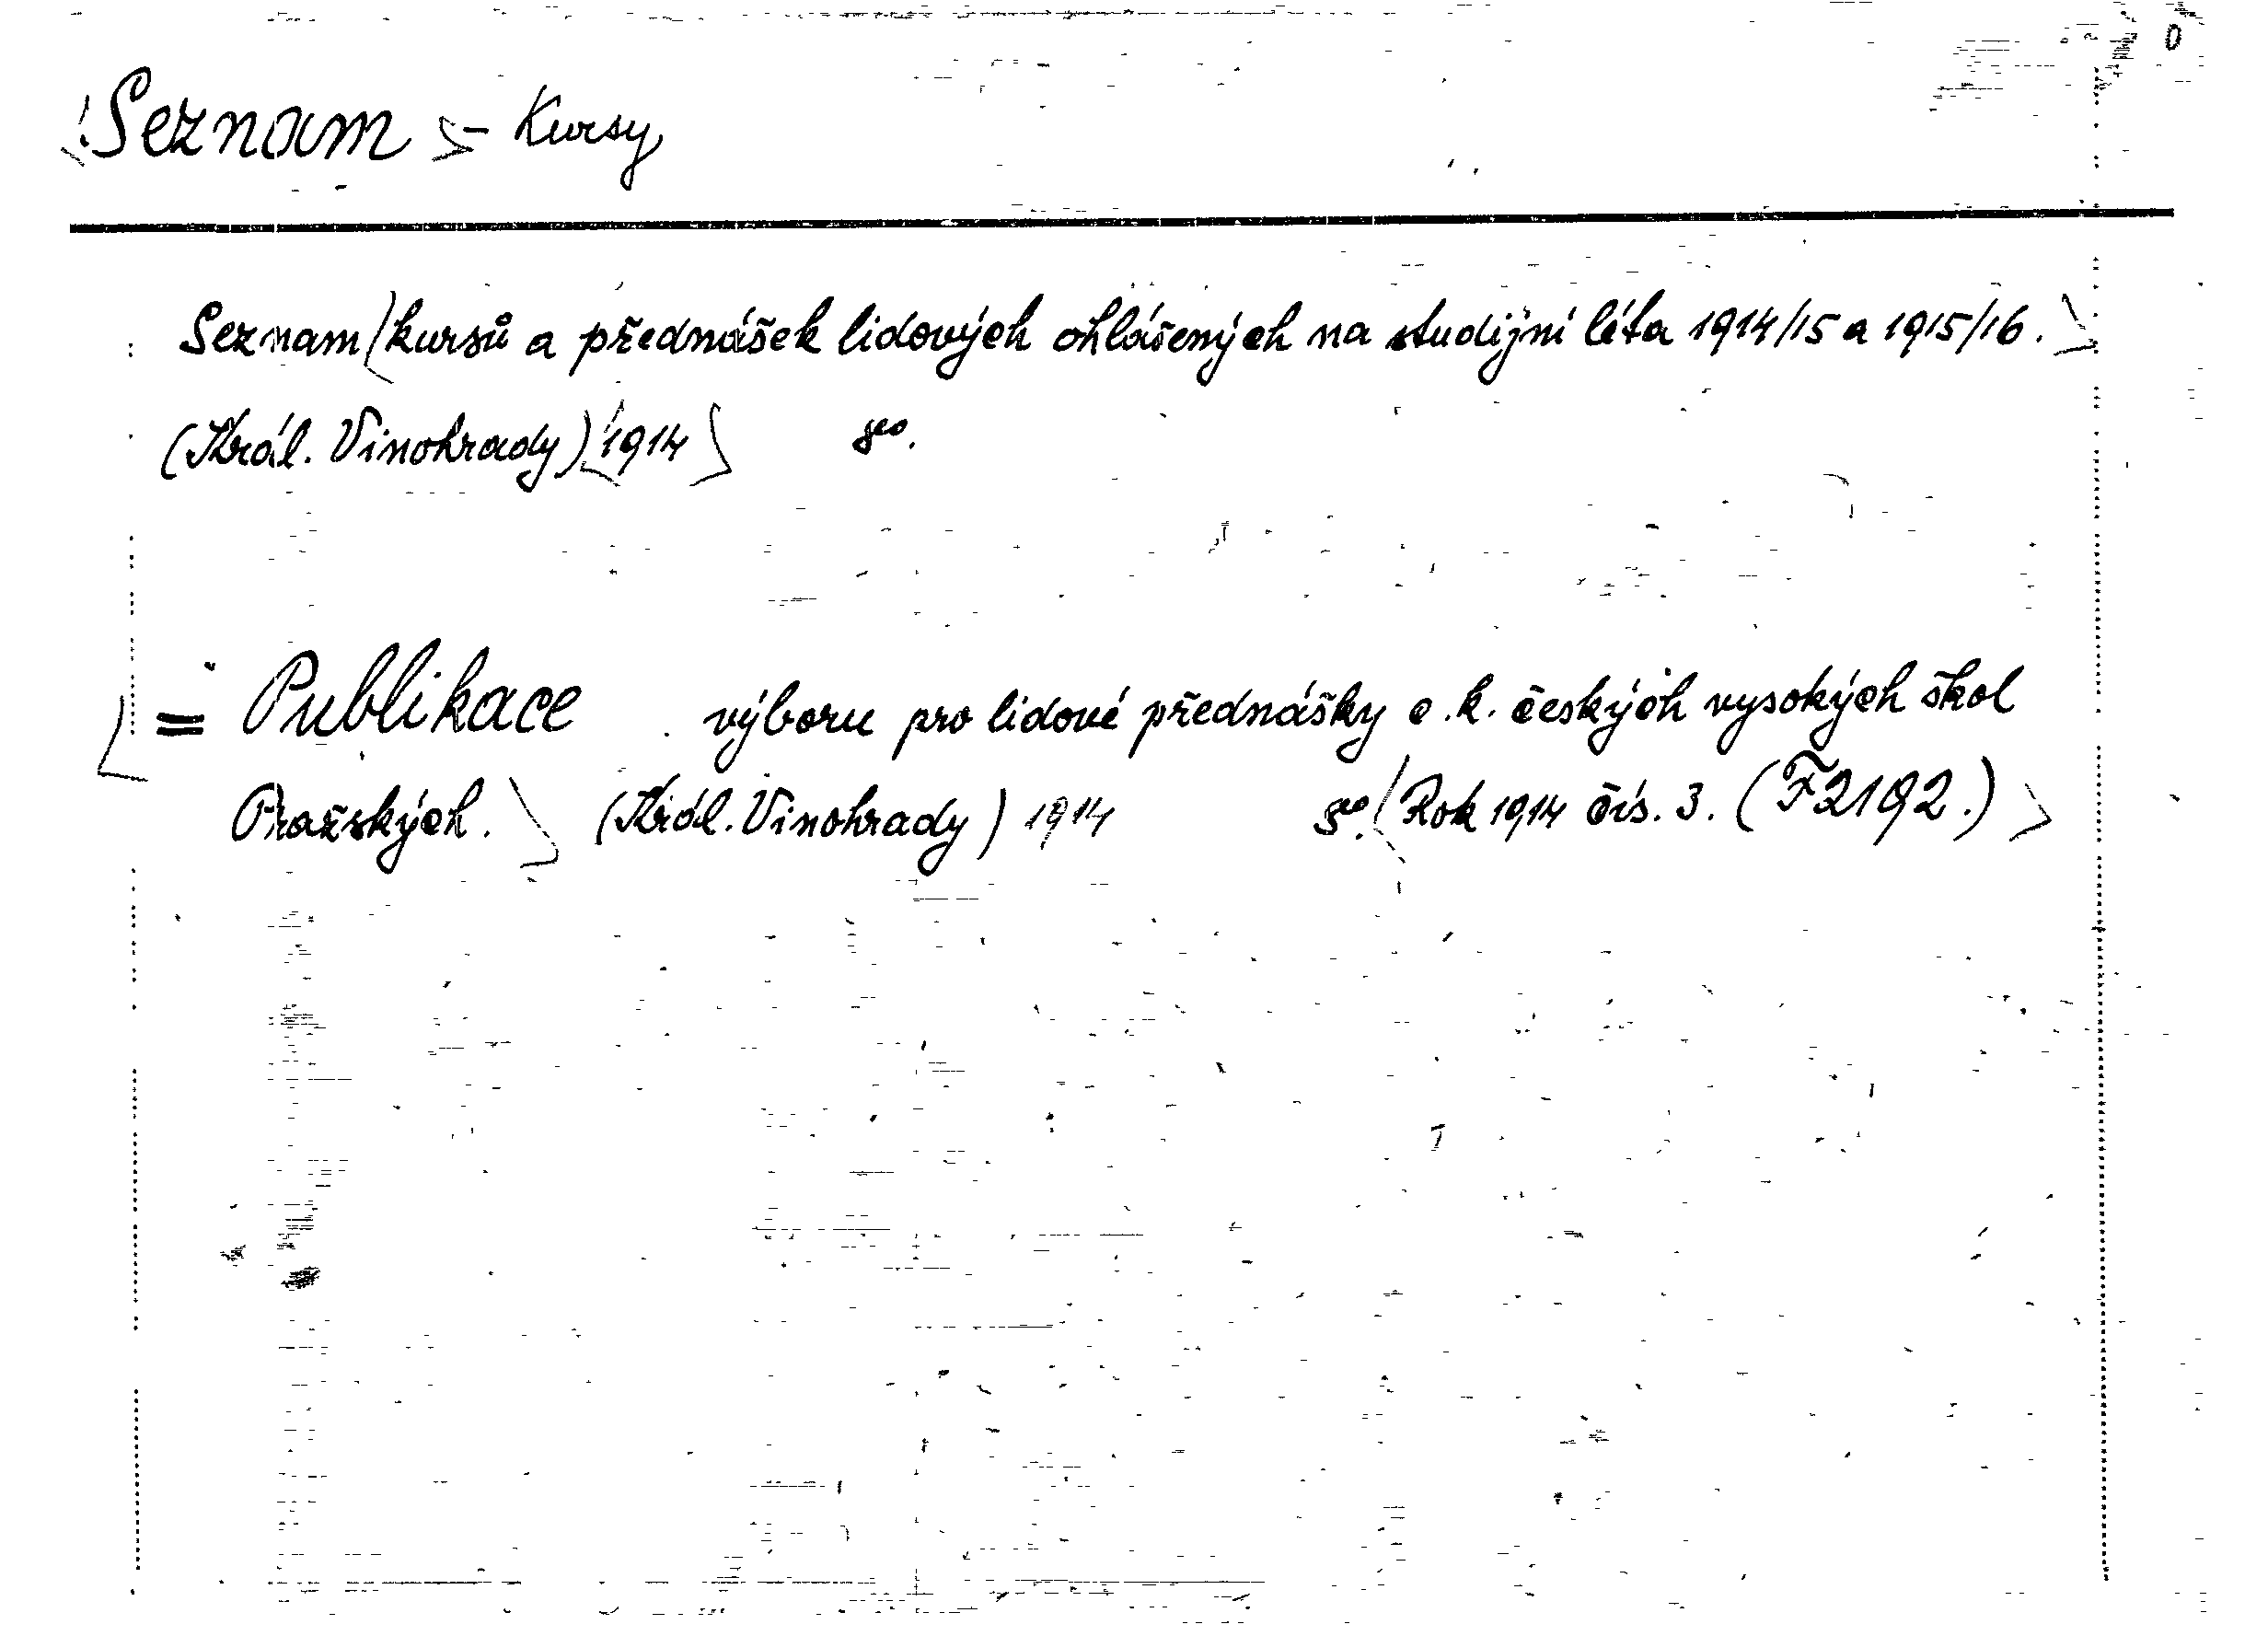 Seznam - Kursy
Seznam kursů a přednášek lidových ohlášených na studijní léta 1914/15 a 1915/16.
(Král. Vinohrady) 1914 8°.
= Publikace výboru pro lidové přednášky c. k. českých vysokých škol
Pražských. (Král. Vinohrady) 1914 8°. Rok 1914 čís. 3. (F2192.)